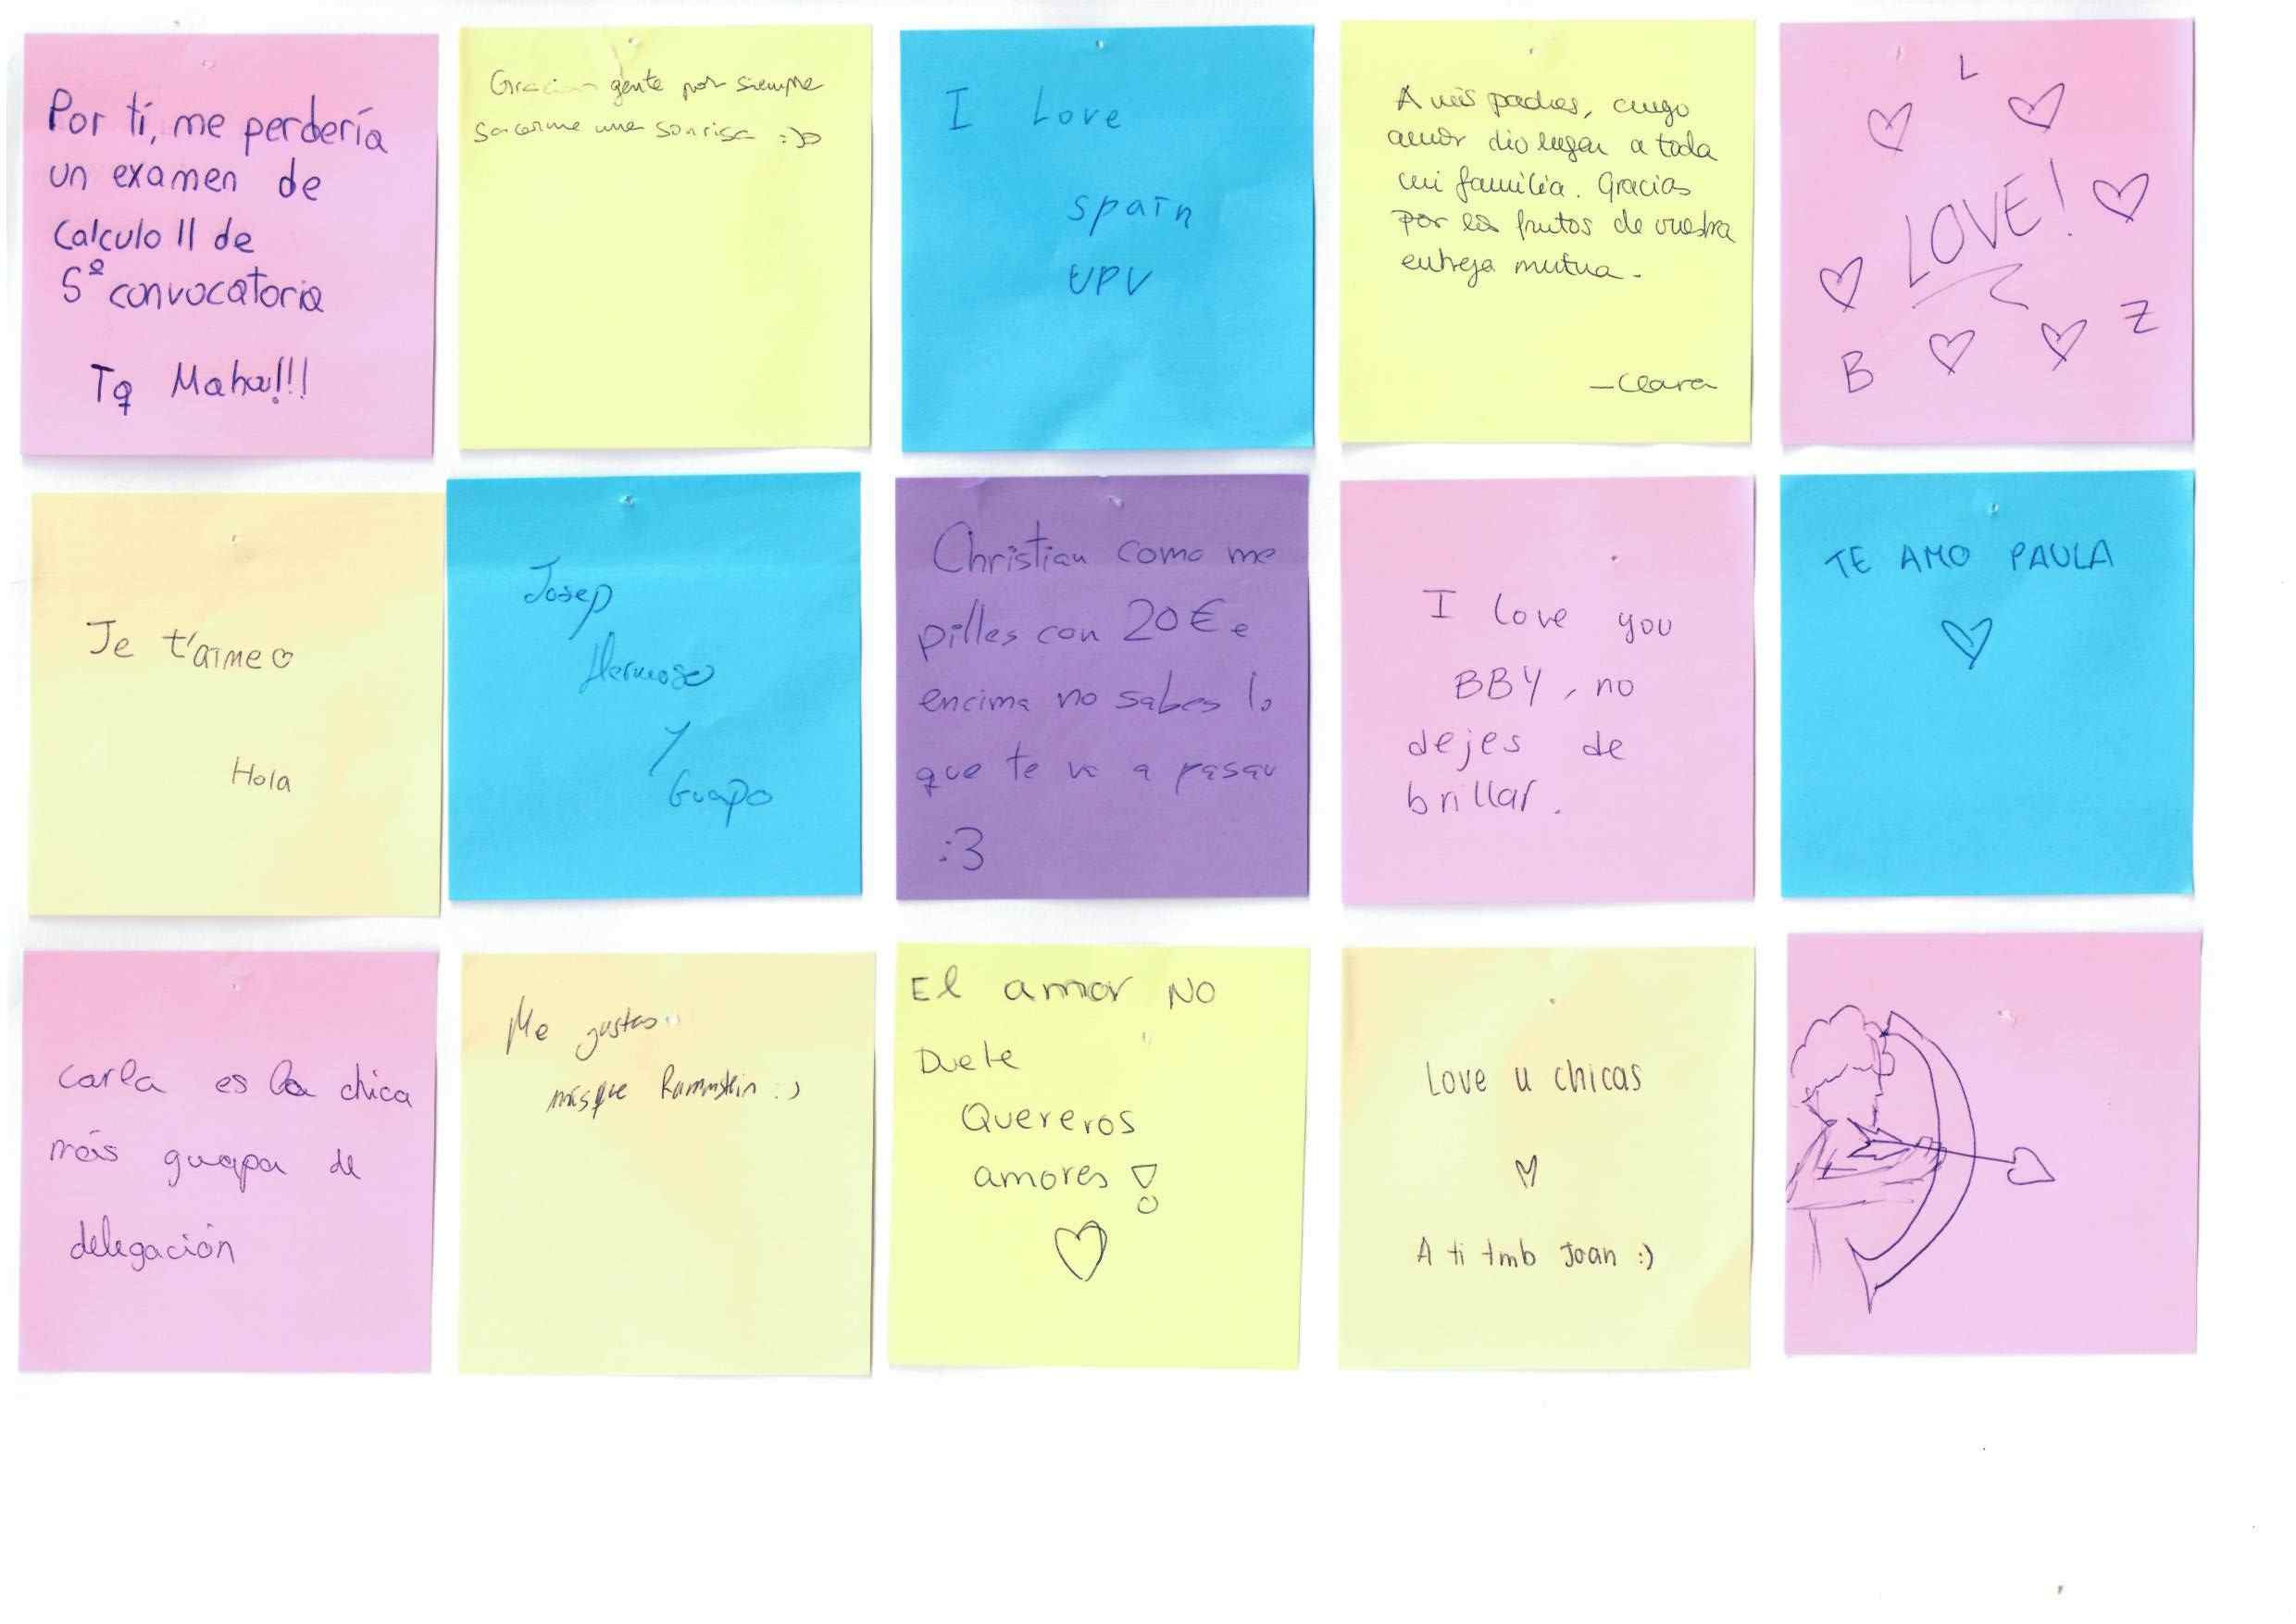 Por ti, me perdería
un examen de
Calculo II de
5º convocatoria
Tq
Gracias gente por siempre
sacarme una sonrisa :)
I Love
spain
UPV
A mis padres, cuyo
amor dio lugar a toda
mi familia. Gracias
por los frutos de vuestra
entrega mutua.
—Clara
L
LOVE!
Z
B
Je t'aime♡
Hola
Josep
Hermoso
Y
Guapo
Christian como me
pilles con 20€ e
encima no sabes lo
que te va a pasar
:3
I love you
BBY, no
dejes de
brillar.
TE AMO PAULA
♡
Carla es la chica
más guapa de
delegación
Me gustas
más que Rammstein :)
El amor NO
Duele
Quereros
amores!
♡
Love u chicas
♡
A ti tmb Joan :)